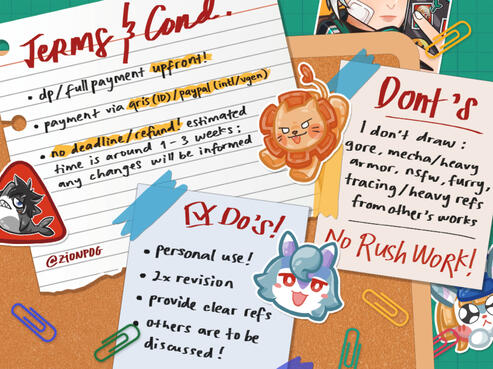 Terms & Cond.
• dp/full payment upfront!
• payment via qris(ID)/paypal(intl/vgen)
• no deadline/refund! estimated
time is around 1-3 weeks;
any changes will be informed
@ZIONPDG
Dont's
I don't draw:
gore, mecha/heavy
armor, nsfw, furry,
tracing/heavy refs
from other's works
No Rush Work!
Do's!
• personal use!
• 2x revision
• provide clear refs
• others are to be
discussed!